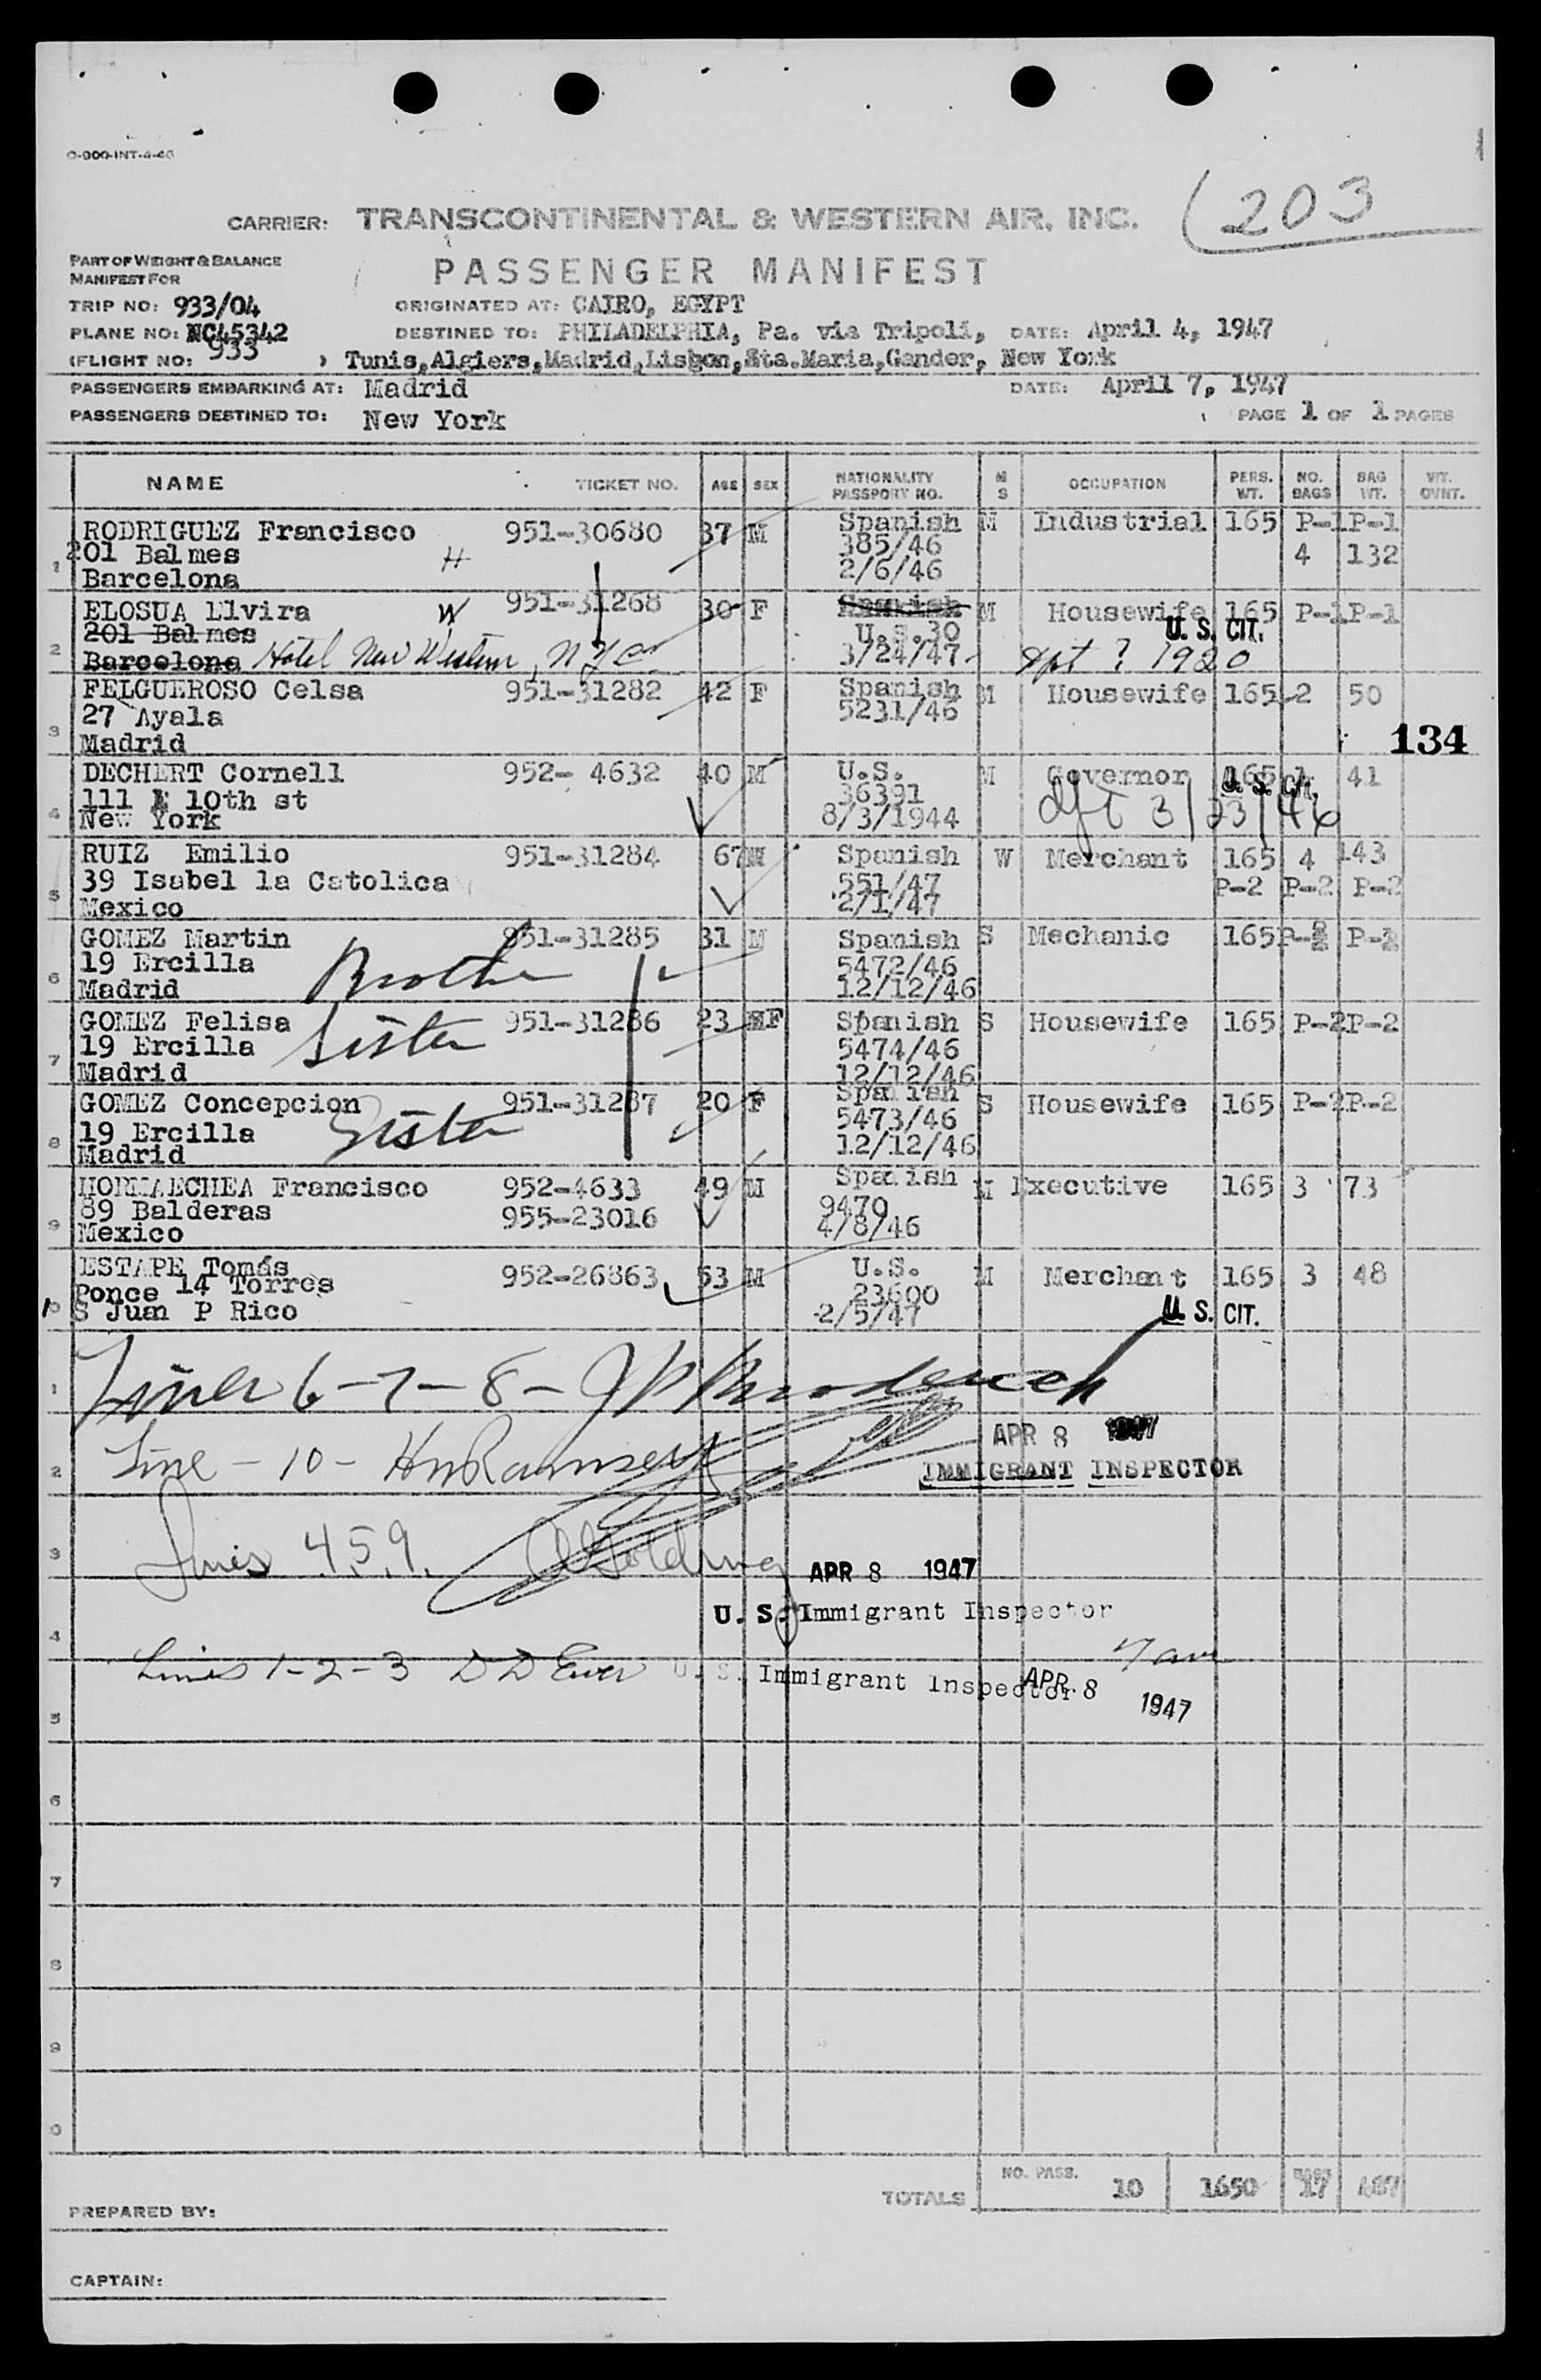 O-900-INT-4-46
203
CARRIER: TRANSCONTINENTAL & WESTERN AIR, INC.
PART OF WEIGHT & BALANCE
MANIFEST FOR
PASSENGER MANIFEST
TRIP NO: 933/04 ORIGINATED AT: CAIRO, EGYPT
PLANE NO: NC45342 DESTINED TO: PHILADELPHIA, Pa. via Tripoli, DATE: April 4, 1947
(FLIGHT NO: 933 ) Tunis,Algiers,Madrid,Lisbon,Sta.Maria,Gander, New York
PASSENGERS EMBARKING AT: Madrid DATE: April 7, 1947
PASSENGERS DESTINED TO: New York PAGE 1 OF 1 PAGES
NAME TICKET NO. AGE SEX NATIONALITY PASSPORT NO. M S OCCUPATION PERS. WT. NO. BAGS BAG WT. WT. OVHT.
1 RODRIGUEZ Francisco 951-30680 37 M Spanish M Industrial 165 P-1 P-1
201 Balmes H 385/46 4 132
Barcelona 2/6/46
2 ELOSUA Elvira W 951-31268 30 F Spanish M Housewife 165 P-1 P-1
201 Balmes U.S.30 U. S. CIT.
Barcelona Hotel New Weston, NYC 3/24/47 ? 1920
3 FELGUEROSO Celsa 951-31282 42 F Spanish M Housewife 165 2 50
27 Ayala 5231/46
Madrid
134
4 DECHERT Cornell 952- 4632 40 M U.S. M Governor 165 1 41
111 E 10th st 36391 U. S. Cit.
New York 8/3/1944 dft 3/23/46
5 RUIZ Emilio 951-31284 67 M Spanish W Merchant 165 4 143
39 Isabel la Catolica 551/47 P-2 P-2 P-2
Mexico 2/1/47
6 GOMEZ Martin 951-31285 31 M Spanish S Mechanic 165
19 Ercilla Brother 5472/46
Madrid 12/12/46
7 GOMEZ Felisa 951-31286 23 F Spanish S Housewife 165 P-2 P-2
19 Ercilla Sister 5474/46
Madrid 12/12/46
8 GOMEZ Concepcion 951-31287 20 F Spanish S Housewife 165 P-2 P-2
19 Ercilla Sister 5473/46
Madrid 12/12/46
9 HORMAECHEA Francisco 952-4633 49 M Spanish M Executive 165 3 73
89 Balderas 955-23016 9470
Mexico 4/8/46
10 ESTAPE Tomás 952-26863 53 M U.S. M Merchant 165 3 48
Ponce 14 Torres 23600
S Juan P Rico 2/5/47 U. S. CIT.
1 Lines 6-7-8-
APR 8 1947
2 Line - 10 - HnRamsey
IMMIGRANT INSPECTOR
3 Lines 4.5.9. Golding APR 8 1947
U. S. Immigrant Inspector
4
Lines 1-2-3 U. S. Immigrant Inspector APR 8 1947
7am
5
6
7
8
9
0
TOTALS NO. PASS. 10 1650 BAGS 17 487
PREPARED BY:
CAPTAIN: